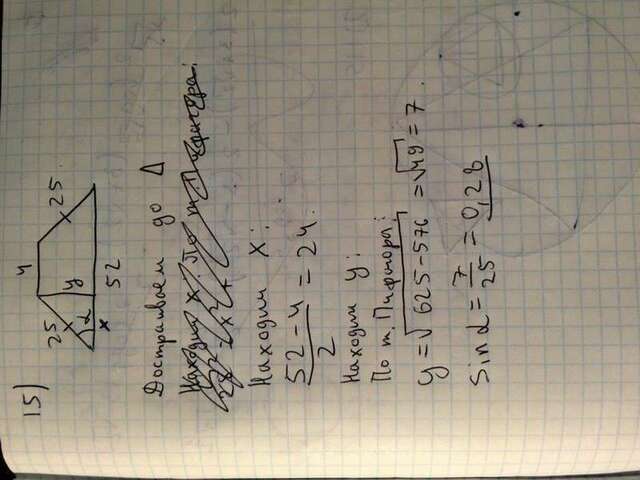 15)
4
25
25
y
α
x
52
Достраиваем до Δ
Находим x. По т. Пифагора:
Находим x:
52-4/2 = 24.
Находим y:
По т. Пифагора:
y = √625-576 = √49 = 7.
Sin α = 7/25 = 0,28